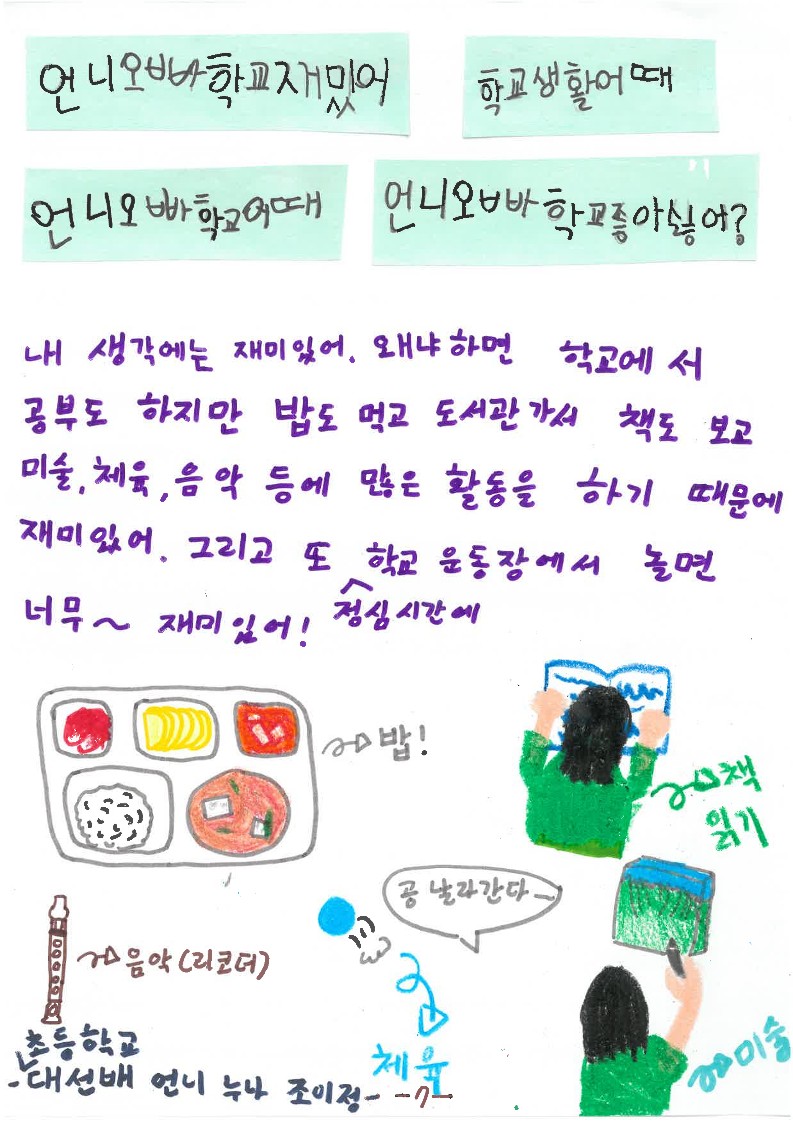 언니오빠학교재밌어
학교생활어때
언니오빠학교어때
언니오빠학교좋아싫어?
내 생각에는 재미있어. 왜냐하면 학교에서
공부도 하지만 밥도 먹고 도서관가서 책도 보고
미술, 체육, 음악 등에 많은 활동을 하기 때문에
재미있어. 그리고 또 학교 운동장에서 놀면
너무~ 재미있어! 점심시간에
밥!
책
읽기
공 날라간다-
음악(리코더)
체육
미술
초등학교
-대선배 언니 누나 조이정-
-7-